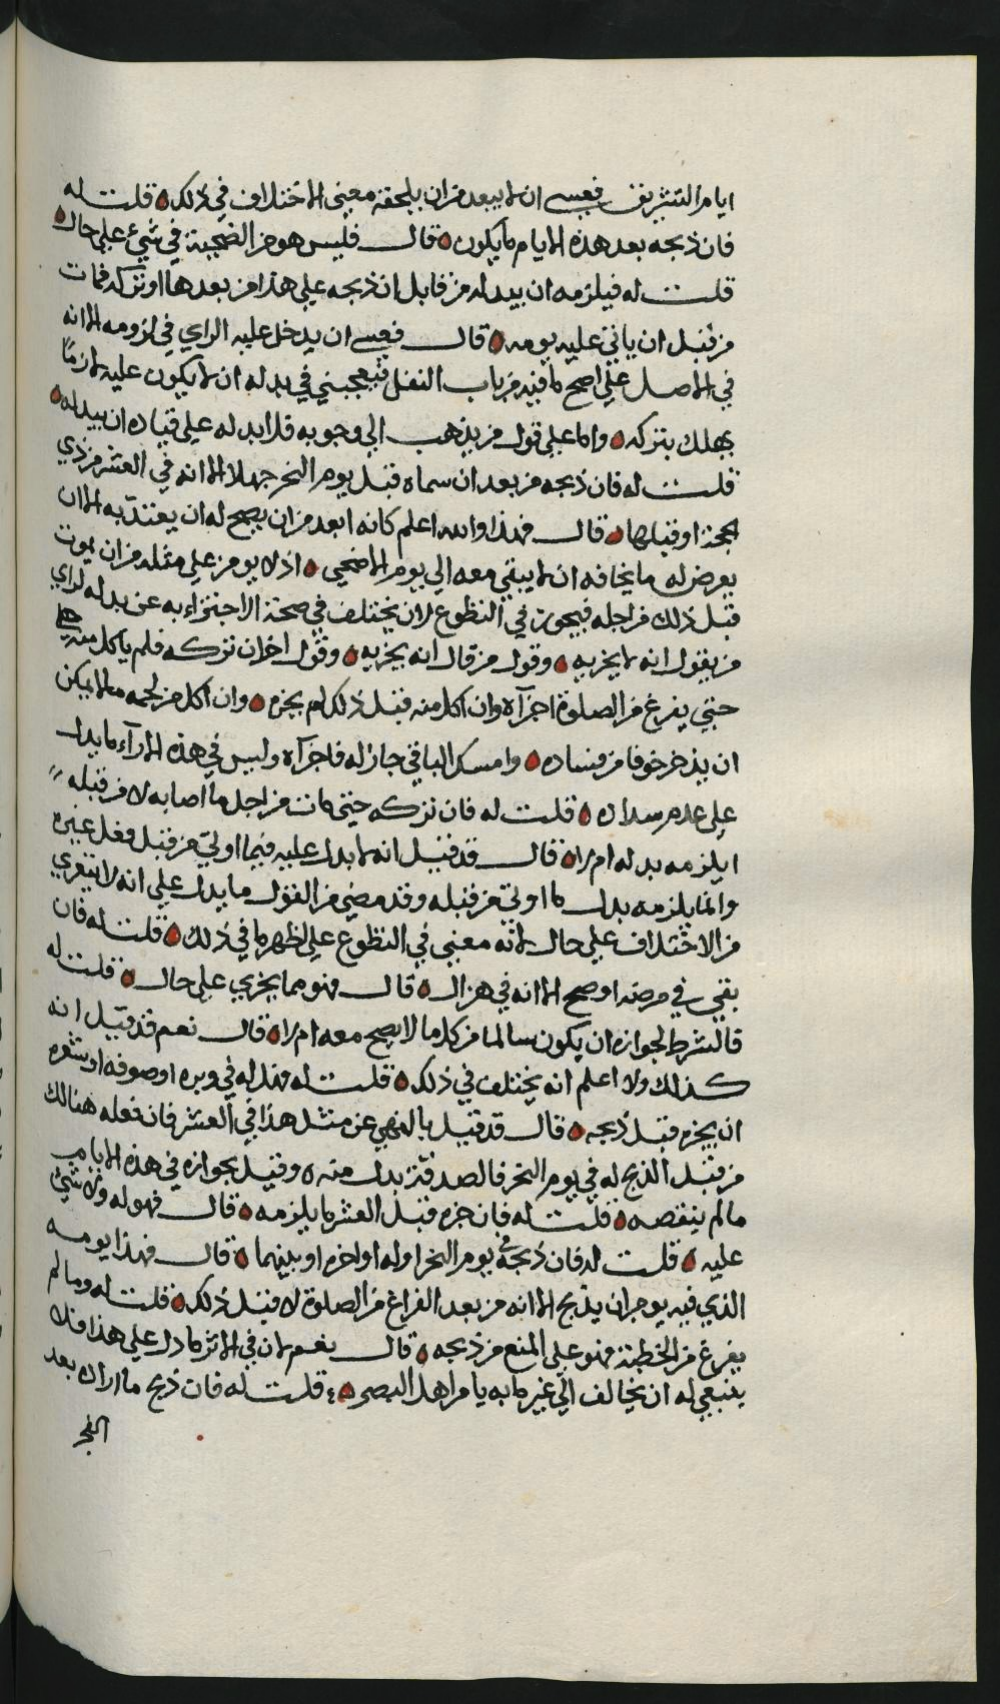 ايام التشريق فعسى ان لا يبعد من ان يلحقه معنى الاختلاف في ذلك ه قلت له
فان ذبحه بعد هذه الايام ما يكون ه قال فليس هو من الضحية في شيء على حال ه
قلت له فيلزمه ان يبدله من قابل ان ذبحه على هذا من بعدها او تركه فمات
من قبل ان ياتي عليه يومه ه قال فعسى ان يدخل عليه الراي في لزومه الا انه
في الاصل على اصح ما فيه من باب النفل فيعجبني في بدله ان لا يكون عليه لازمًا
يهلك بتركه ه واما على قول من يذهب الي وجوبه فلا بد له على قياده ان يبدله ه
قلت له فان ذبحه من بعد ان سماه قبل يوم النحر جهلا الا انه في العشر من ذي
الحجة او قبلها ه قال فهذا والله اعلم كانه ابعد من ان يصح له ان يعتدّ به الا ان
يعرض له ما يخافه ان لا يبقى معه الي يوم الاضحى ه اذ لا يومن على مثله من ان يموت
قبل ذلك من اجله فيجوز في التطوع لان يختلف في صحة الاجتزاء به عن بدله لراي
من يقول انه لا يجزيه ه وقول من قال انه يجزيه ه وقول اخر ان تركه فلم ياكل منه
حتى يفرغ من الصلوة اجزآه وان اكل منه قبل ذلك لم يجزه ه وان اكل من لحمه ما لا يمكن
ان يدخر خوفا من فساده ه وامسك الباقي جاز له فاجزآه وليس في هذه الارآء ما يدل
على عدم سداده ه قلت له فان تركه حتى مات من اجل ما اصابه لا من قبله
ايلزمه بدله ام لا ه قال قد قيل انه لا بدل عليه فيما اوتي من قبل فعل غيره
وانما يلزمه بدل ما اوتي من قبله وقد مضى من القول ما يدل على انه لا يتعرى
من الاختلاف على حال لانه معنى في التطوع على اظهر ما في ذلك ه قلت له فان
بقي في مرضه او صح الا انه في هزال ه قال فهو مما يجزي على حال ه قلت له
فالشرط لجوازه ان يكون سالما من كل ما لا يصح معه ام لا ه قال نعم قد قيل انه
كذلك ولا اعلم انه يختلف في ذلك ه قلت له فهل له في وبره او صوفه او شعره
ان يجزه قبل ذبحه ه قال قد قيل بالنهي عن مثل هذا في العشر فان فعله هنالك
من قبل الذبح له في يوم النحر فالصدقة بدل منه ه وقيل بجوازه في هذه الايام
ما لم ينقصه ه قلت له فان جزه قبل العشر ما يلزمه ه قال فهو له ولا شيء
عليه ه قلت له فان ذبحه في يوم النحر اوله او اخره او بينهما ه قال فهذا يومه
الذي فيه يوجر ان يذبح الا انه من بعد الفراغ من الصلوة لا قبل ذلك ه قلت له وما لم
يفرغ من الخطبة فهو على المنع من ذبحه ه قال نعم لان في الاثر ما دل على هذا فلا
ينبغي له ان يخالف الي غير ما به يامر اهل البصر ه قلت له فان ذبح ما اراده بعد
الفجر